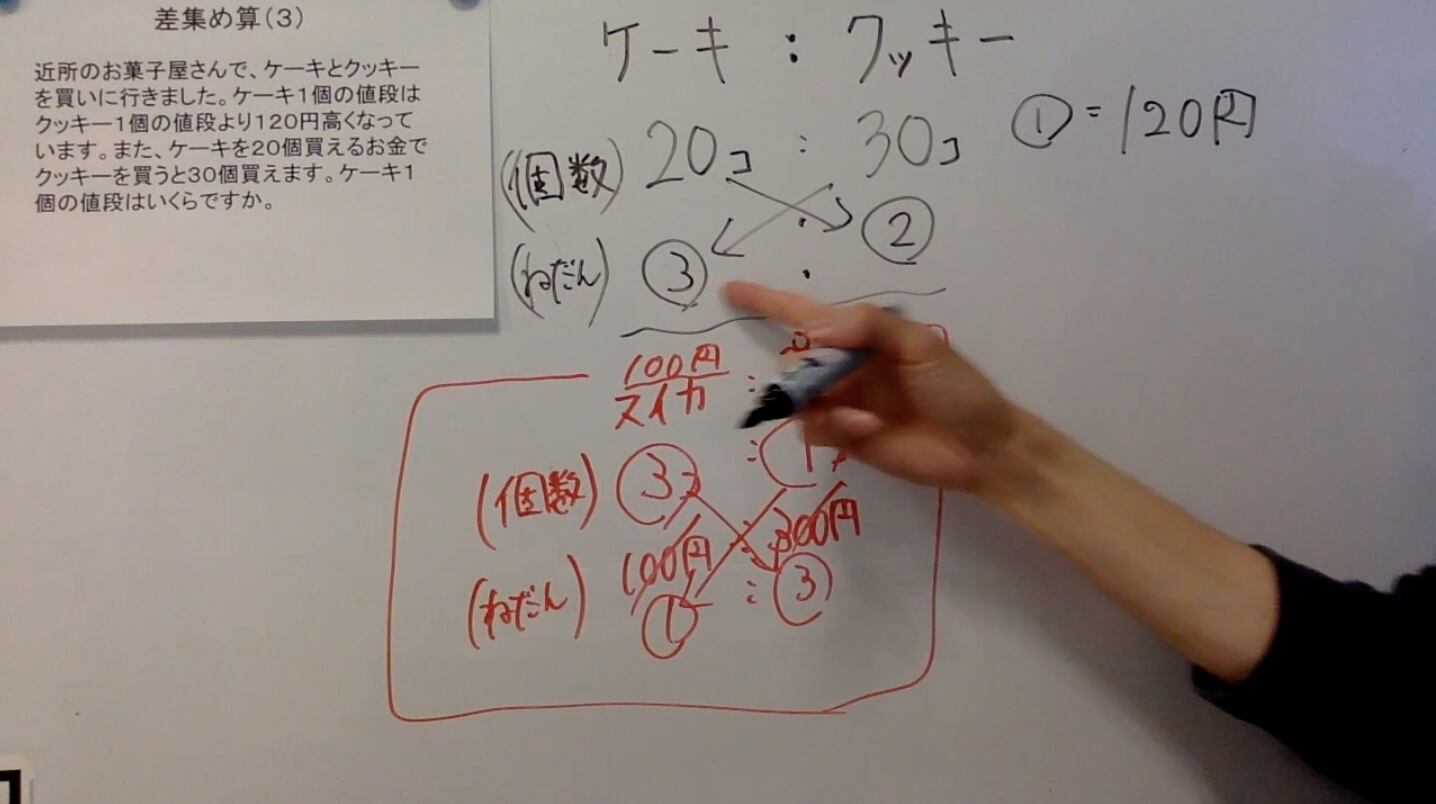 差集め算(3)
近所のお菓子屋さんで、ケーキとクッキー
を買いに行きました。ケーキ1個の値段は
クッキー1個の値段より120円高くなって
います。また、ケーキを20個買えるお金で
クッキーを買うと30個買えます。ケーキ1
個の値段はいくらですか。
ケーキ : クッキー
(個数) 20コ : 30コ
①=120円
(ねだん) ③ : ②
100円
スイカ :
(個数) ③コ : ①
100円 : 300円
(ねだん) ① : ③